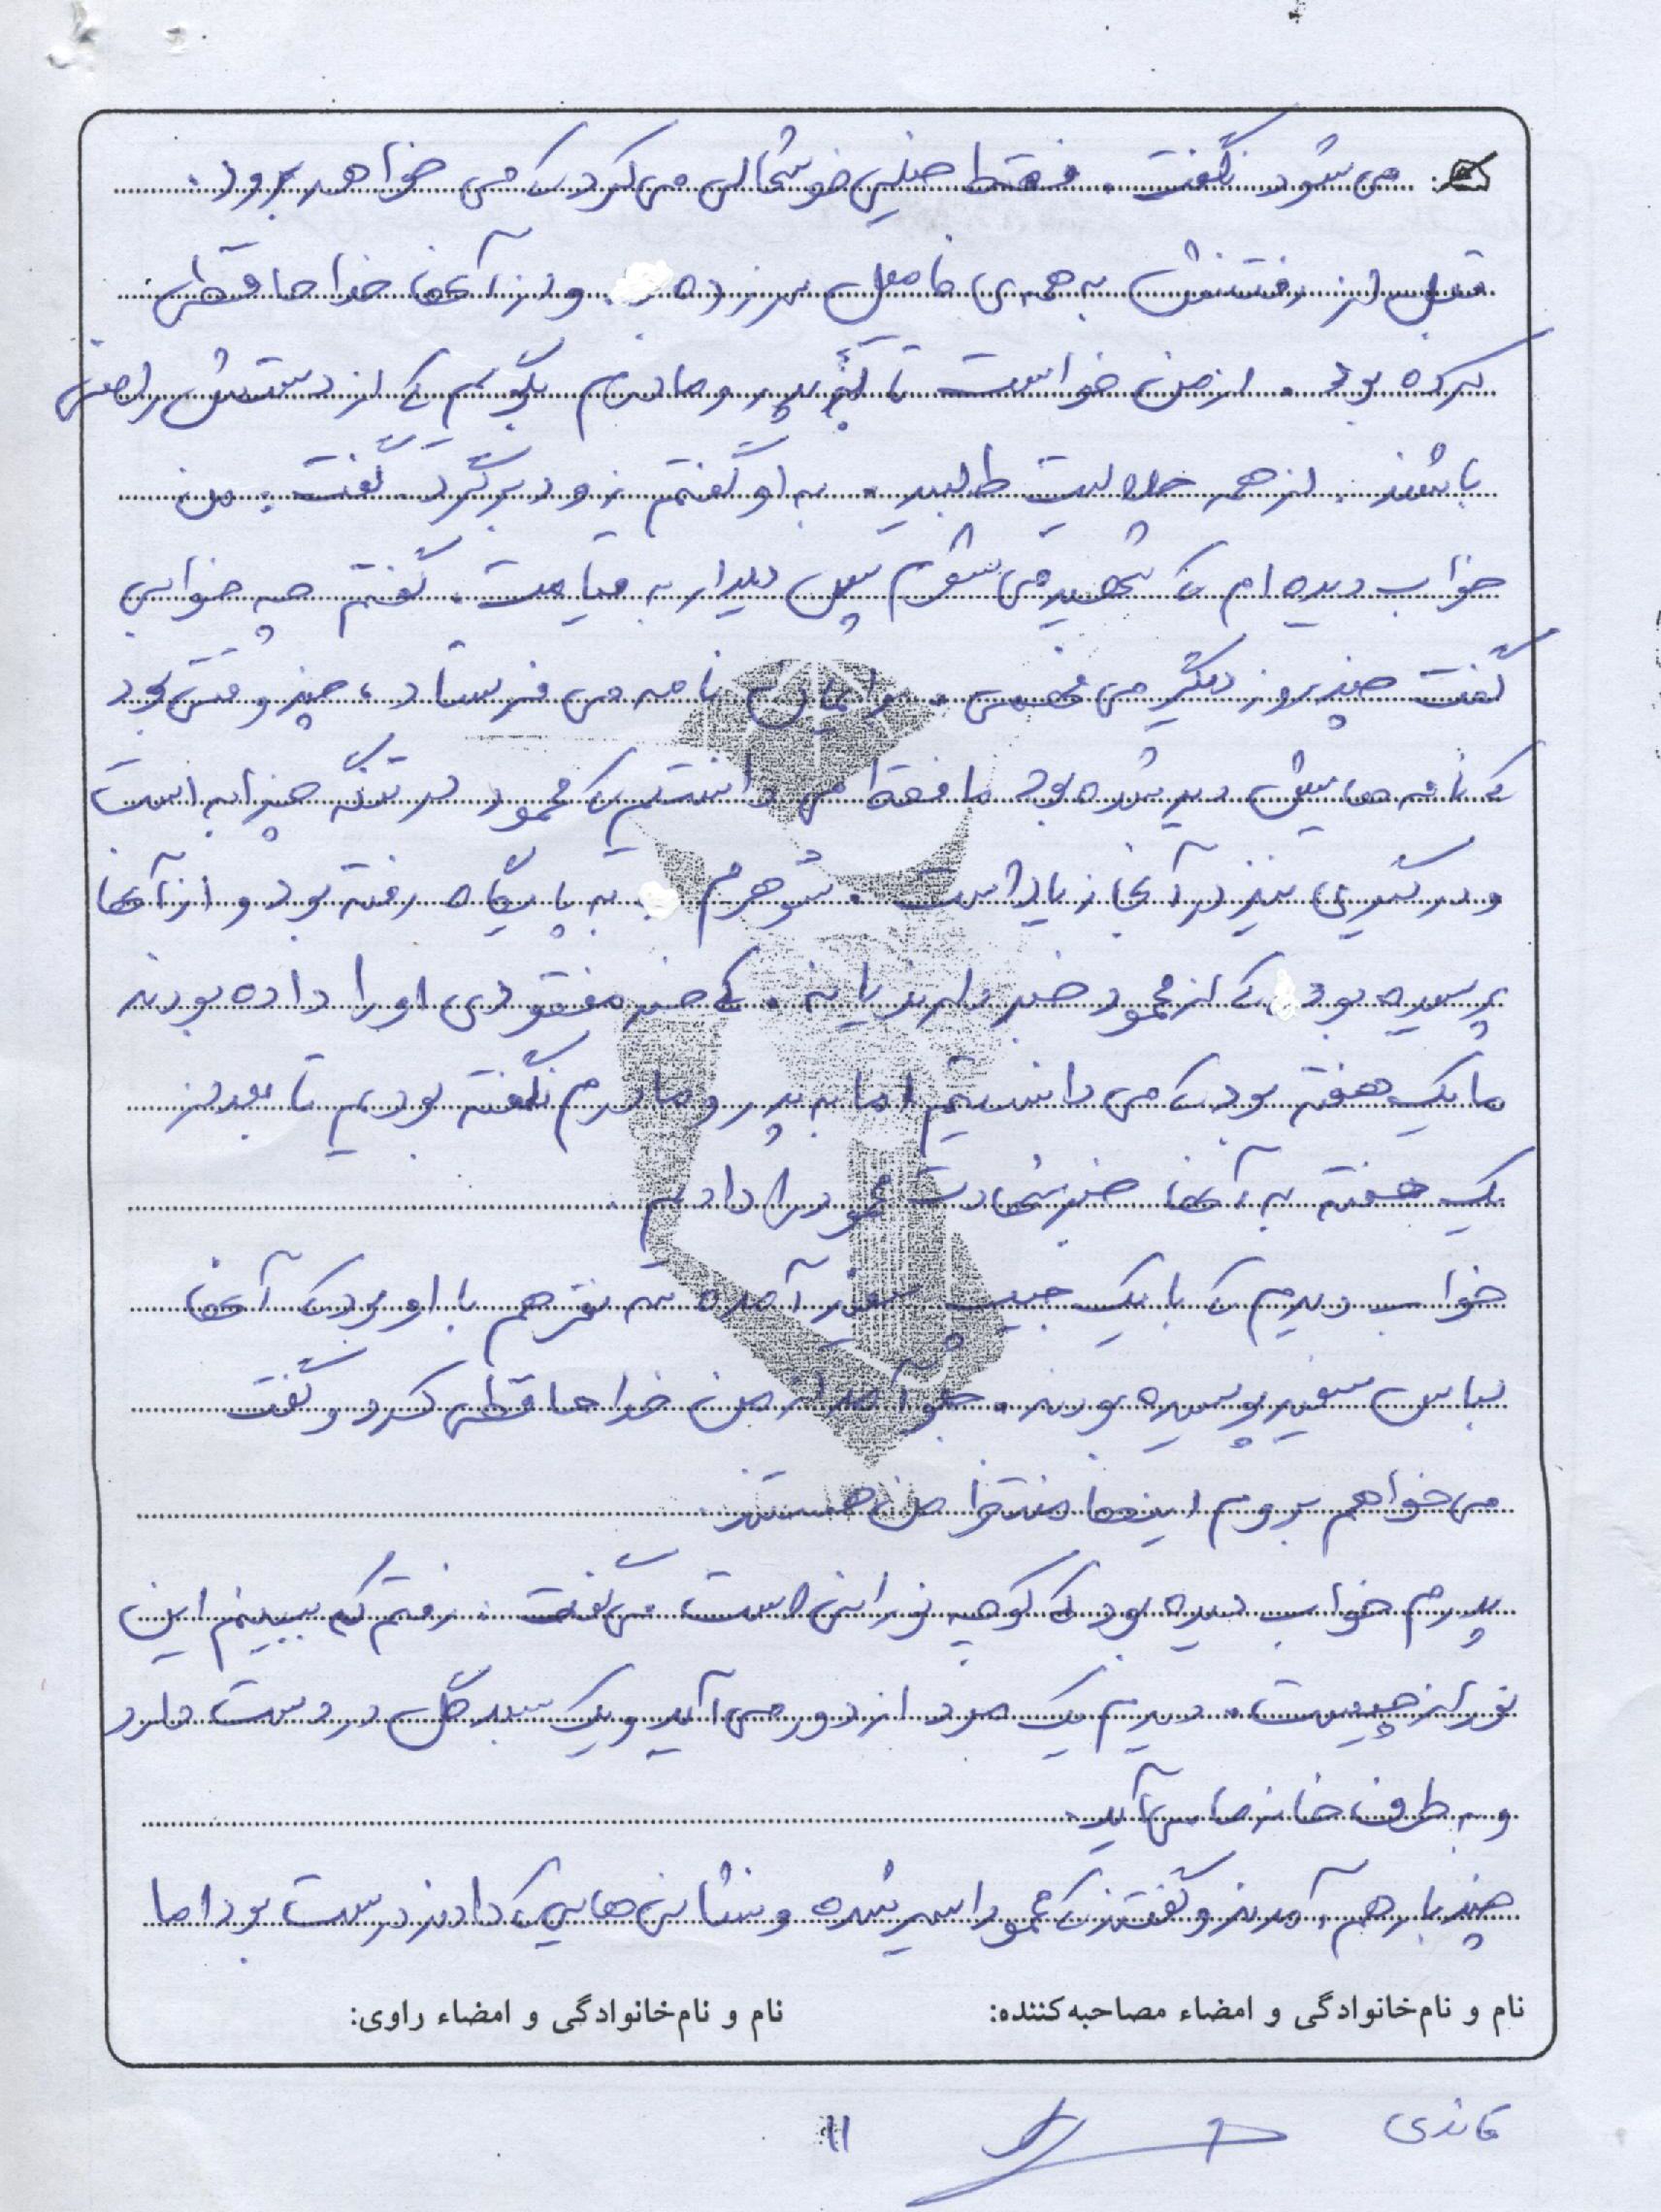 می شود نگفت. فقط خیلی خوشحالی می کرد که می خواهد برود.
قبل از رفتنش به همه ی فامیل سر زده و از آنها خداحافظی
کرده بود. از من خواست تا به پدر و مادرم بگویم که از دستش راضی
باشند. از همه حلالیت طلبید. به او گفتم زود برگرد گفت: من
خواب دیده ام که شهید می شوم پس دیدار به قیامت. گفتم چه خوابی
گفت چند روز دیگر می فهمی. برایمان نامه می فرستاد، چند وقتی بود
که نامه هایش دیر شده بود ما فقط می دانستیم که محمود در تنگه چزابه است
و درگیری نیز در آنجا زیاد است. شوهرم به پایگاه رفته بود و از آنها
پرسیده بود که از محمود خبر دارند یا نه. که خبر مفقودی او را داده بودند
ما یک هفته بود که می دانستیم اما به پدر و مادرم نگفته بودیم تا بعد از
یک هفته به آنها خبر شهادت محمود را دادیم.
خواب دیدم که با یک جیپ سفید آمده سه نفر هم با او بود که آنها
لباس سفید پوشیده بودند. جلو آمد از من خداحافظی کرد و گفت
می خواهم بروم اینها منتظر من هستند.
پدرم خواب دیده بود که کوچه نورانی است می گفت: رفتم که ببینم این
نور از چیست. دیدم یک مرد از دور می آید و یک سبد گل در دست دارد
و به طرف خانه ما می آید.
چند بار هم آمدند و گفتند که محمود اسیر شده و نشانی هایی که دادند درست بود اما
نام و نام‌خانوادگی و امضاء مصاحبه‌کننده: نام و نام‌خانوادگی و امضاء راوی:
قائدی ۱۱